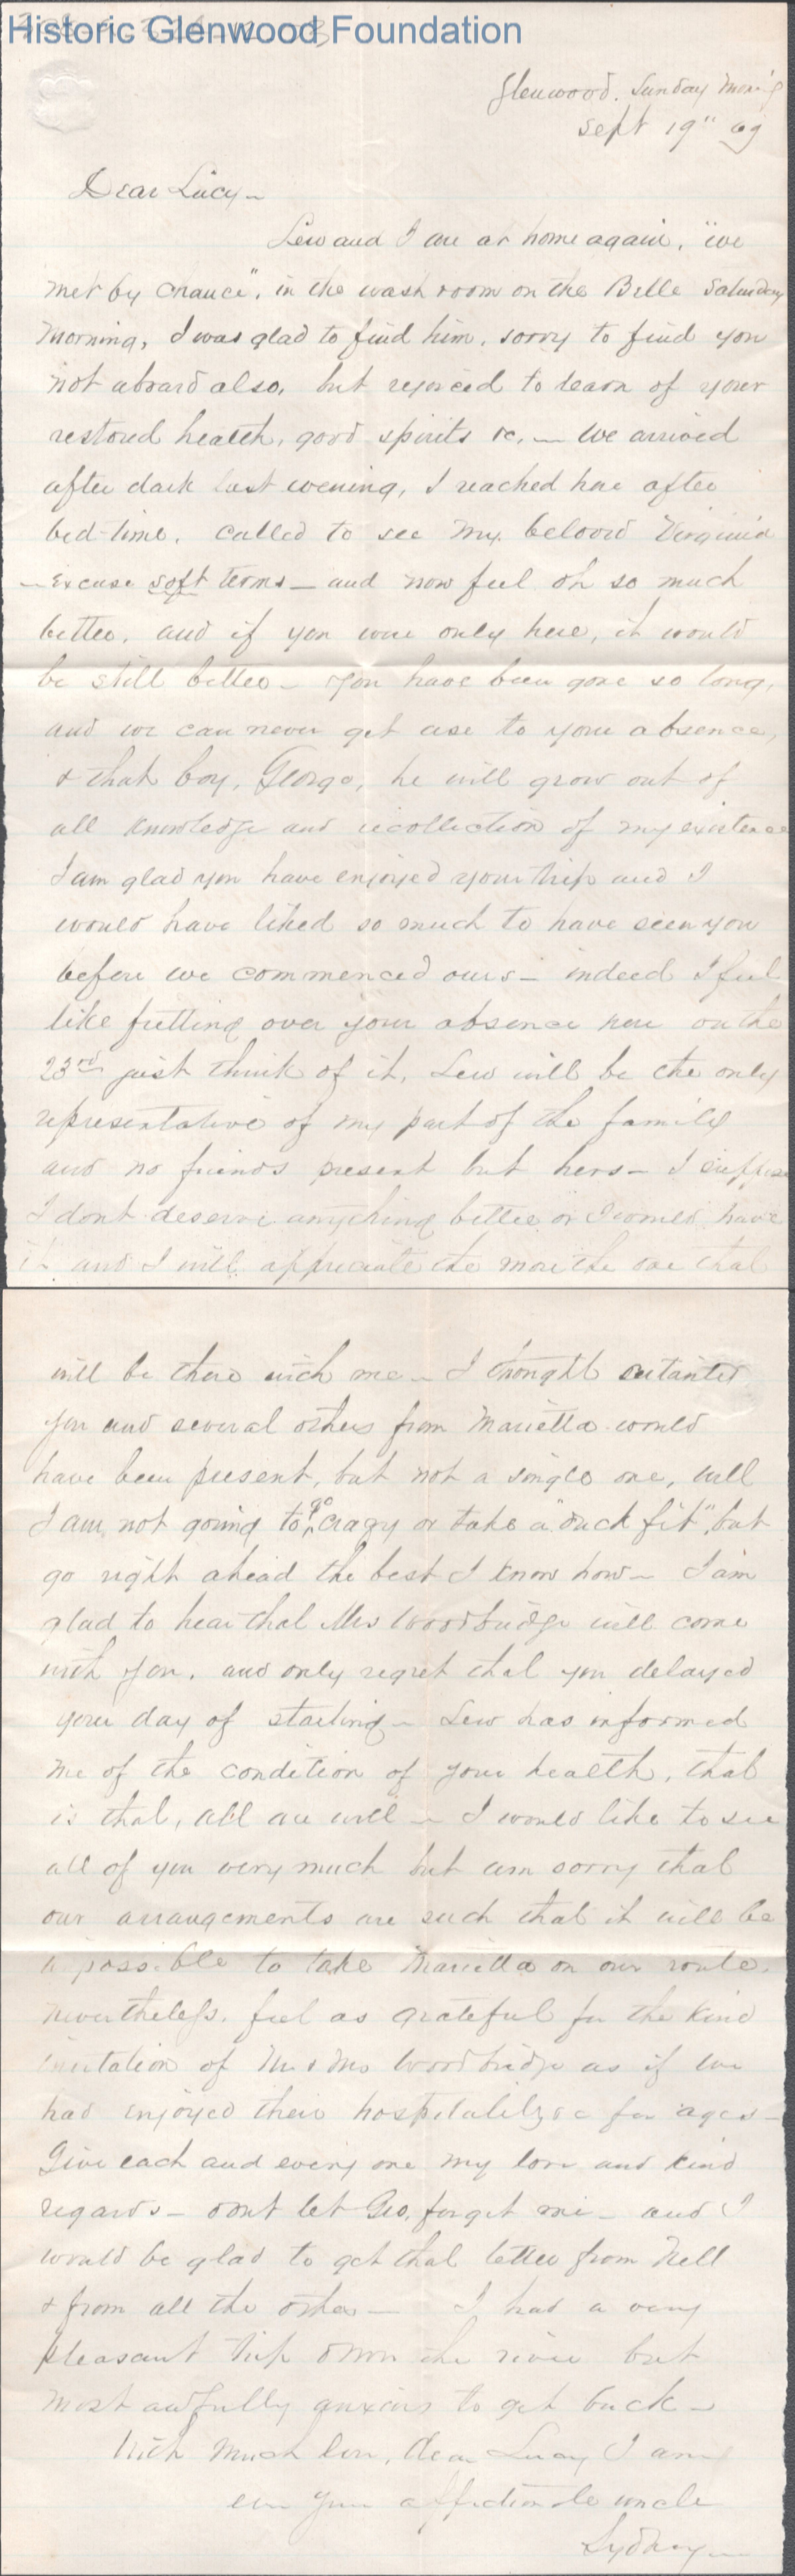 Historic Glenwood Foundation
Glenwood. Sunday Morn'g
Sept 19" 69
Dear Lucy—
Lew and I are at home again, "we
met by chance", in the wash room on the Belle Saturday
Morning, I was glad to find him, sorry to find you
not aboard also, but rejoiced to learn of your
restored health, good spirits &c, — We arrived
after dark last evening, I reached here after
bed-time. Called to see my beloved Virginia
— Excuse soft terms — and now feel oh so much
better, and if you were only here, it would
be still better — You have been gone so long,
and we can never get use to your absence,
& that boy, George, he will grow out of
all knowledge and recollection of my existence
I am glad you have enjoyed your trip and I
would have liked so much to have seen you
before we commenced ours — indeed I feel
like fretting over your absence here on the
23rd just think of it, Lew will be the only
representative of my part of the family
and no friends present but hers — I suppose
I dont deserve anything better or I would have
it and I will appreciate the more the one that
will be there with me — I thought certainly
you and several others from Marietta would
have been present, but not a single one, well
I am not going to go crazy or take a "duck fit", but
go right ahead the best I know how — I am
glad to hear that Mrs Woodbridge will come
with you, and only regret that you delayed
your day of starting — Lew has informed
me of the condition of your health, that
is that, all are well — I would like to see
all of you very much but am sorry that
our arrangements are such that it will be
impossible to take Marietta on our route.
Nevertheless, feel as grateful for the kind
invitation of Mr & Mrs Woodbridge as if we
had enjoyed their hospitality &c for ages —
Give each and every one my love and kind
regards — dont let Geo. forget me — and I
would be glad to get that letter from Nell
& from all the others — I had a very
pleasant trip down the river but
most awfully anxious to get back —
With much love, dear Lucy I am
ever your affectionate uncle
Sydney —